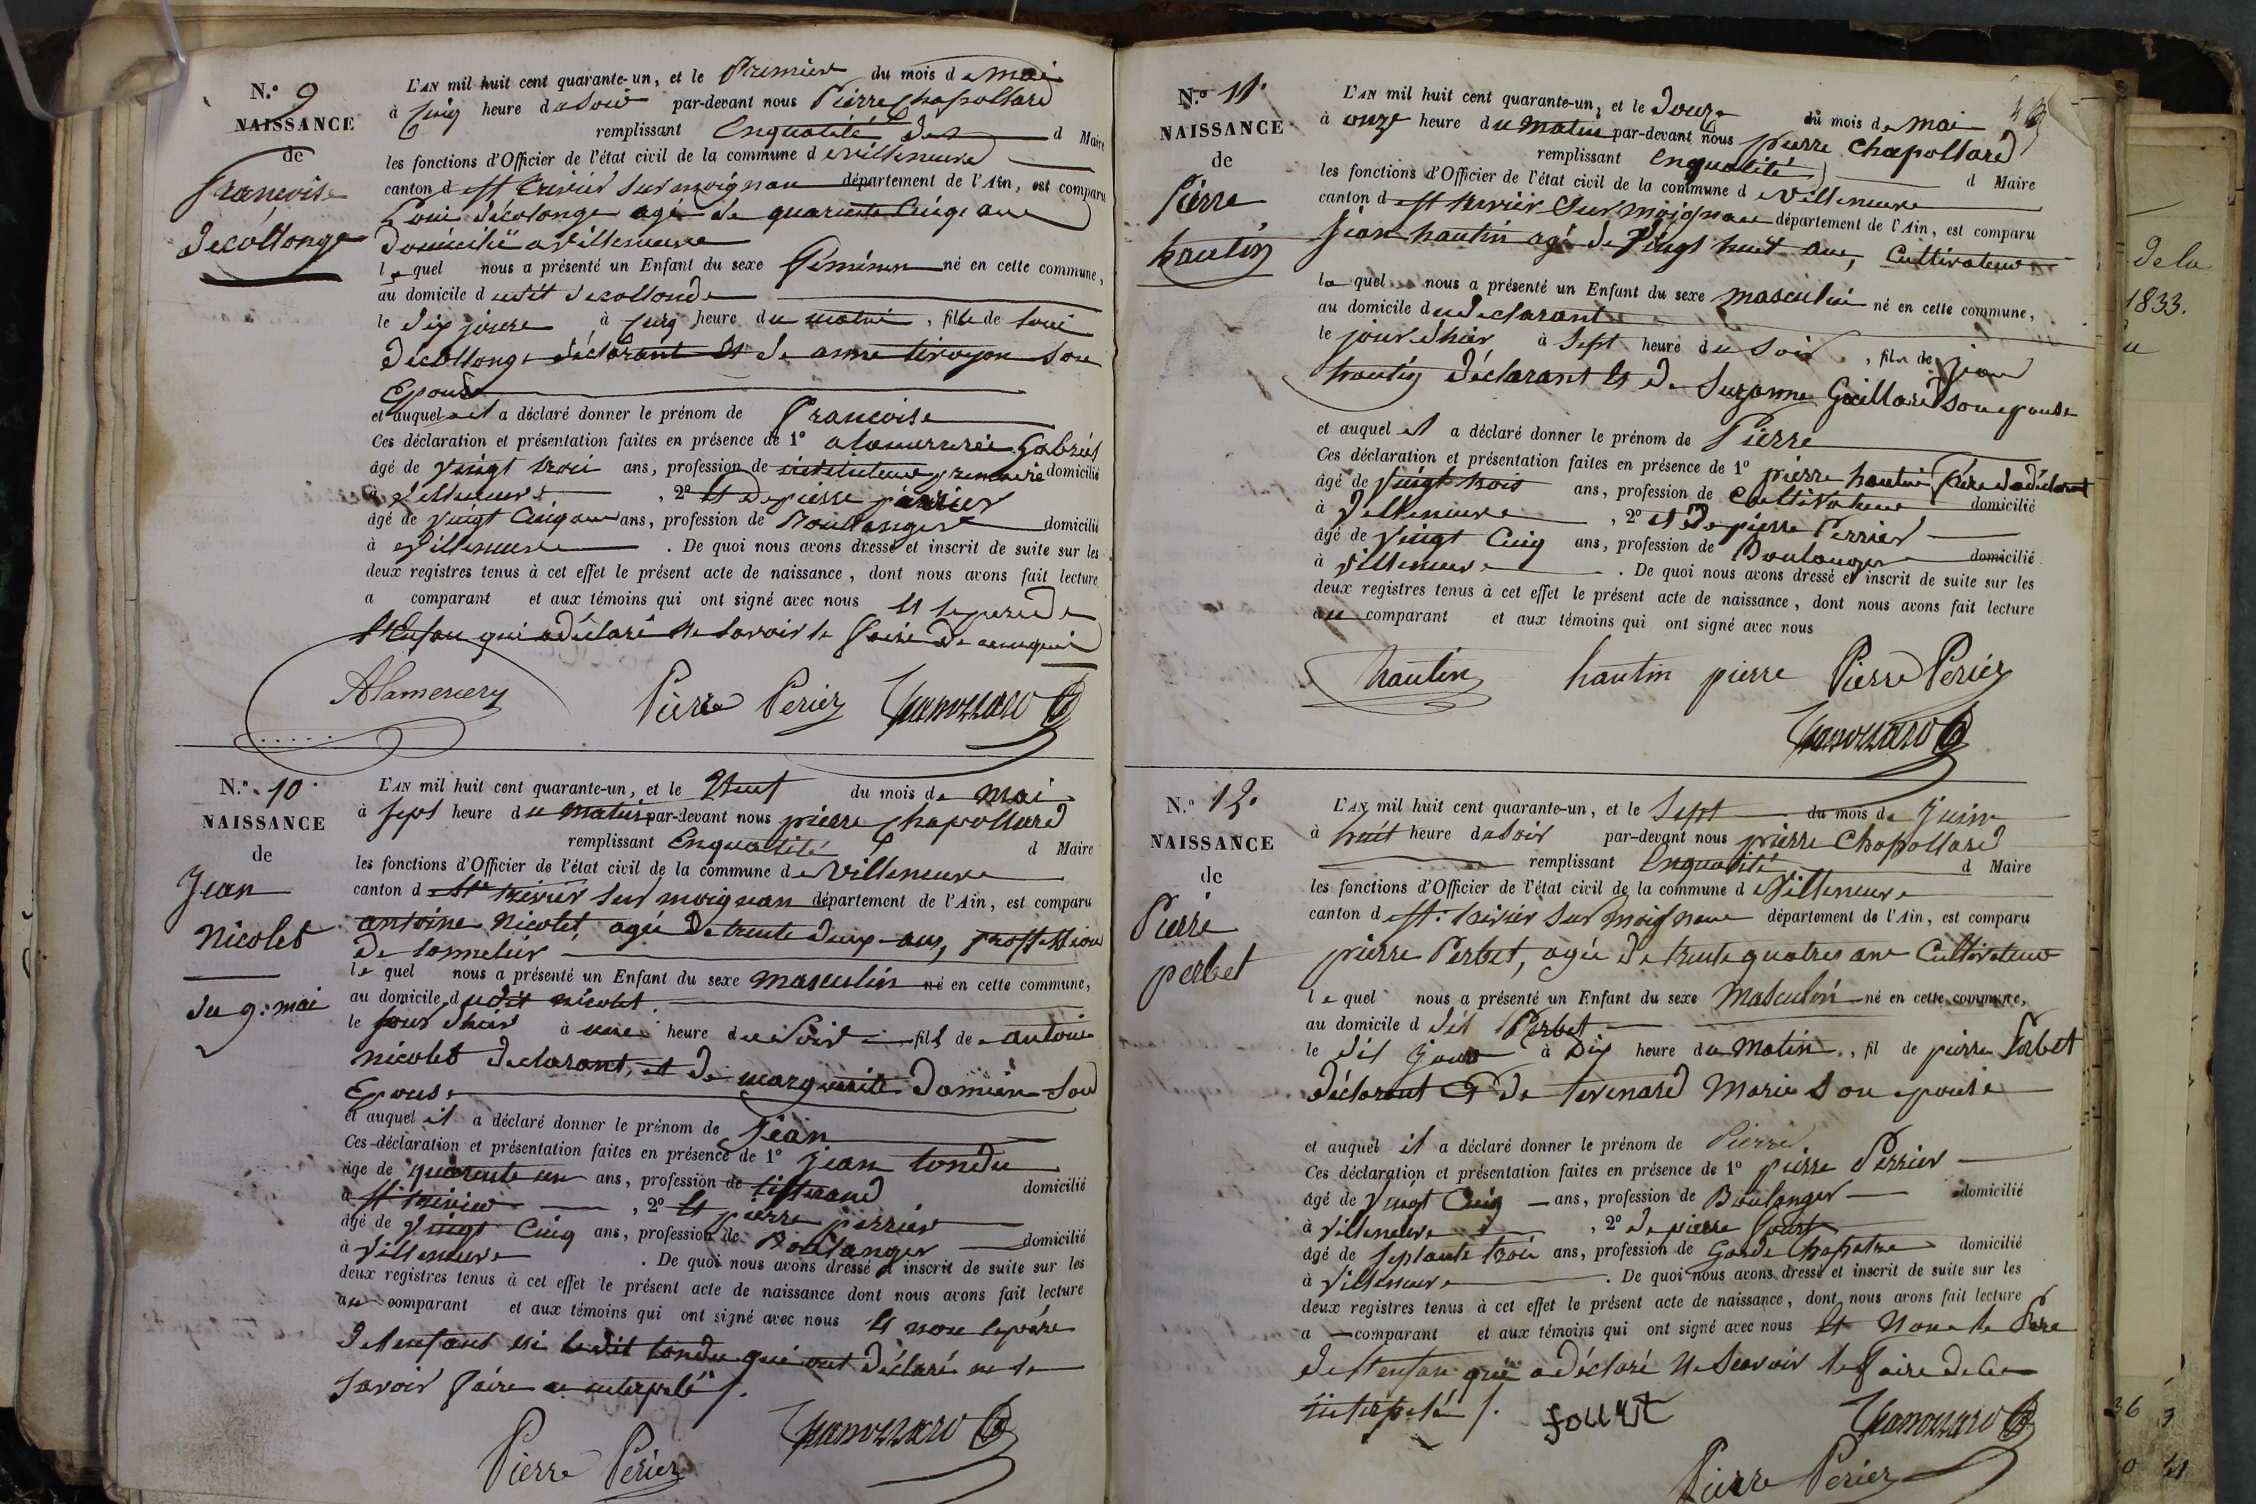 N.º 9
NAISSANCE
de
françoise
decollonge
L'AN mil huit cent quarante-un, et le Premier du mois de mai
à Cinq heure du Soir par-devant nous Pierre Chapollard
remplissant Enqualité des d Maire
les fonctions d'Officier de l'état civil de la commune de villeneuve
canton de St trivier sur moignan département de l'Ain, est comparu
Loui decolonge agé de quarante Cinq ans
Domicilié a villeneuve
lequel nous a présenté un Enfant du sexe féminin né en cette commune,
au domicile du dit decollonde
le dix jours à Cinq heure du matin, fille de loui
decollonge déclarant et de anne tiroyon son
Epouse
et auquel il a déclaré donner le prénom de francoise
Ces déclaration et présentation faites en présence de 1º Gabriel
âgé de vingt trois ans, profession de instituteur primaire domicilié
à villeneuve, 2º et de pierre perrier
âgé de vingt Cinq ans ans, profession de Boulanger domicilié
à villeneuve. De quoi nous avons dressé et inscrit de suite sur les
deux registres tenus à cet effet le présent acte de naissance, dont nous avons fait lecture
a comparant et aux témoins qui ont signé avec nous et le pere de
l'Enfan qui a déclaré ne savoir le faire de ce requi
Alamerery Pierre Perier
N.º 10.
NAISSANCE
de
Jean
nicolet
du 9. mai
L'AN mil huit cent quarante-un, et le Neuf du mois de mai
à sept heure du matin par-devant nous pierre Chapollard
remplissant Enqualité d Maire
les fonctions d'Officier de l'état civil de la commune de villeneuve
canton de St trivier sur moignan département de l'Ain, est comparu
antoine nicolet, agée de trente deux ans, professtion
de tonnelier
lequel nous a présenté un Enfant du sexe masculin né en cette commune,
au domicile du dit nicolet
le jour d'hier à une heure du Soir fils de antoine
nicolet declarant, et de marguerite Damien Son
Epouse
et auquel il a déclaré donner le prénom de jean
Ces déclaration et présentation faites en présence de 1º jean tondu
âgé de quarente un ans, profession de tisserand domicilié
à St trivier, 2º et pierre perrier
âgé de vingt Cinq ans, profession de Boulanger domicilié
à villeneuve. De quoi nous avons dressé et inscrit de suite sur les
deux registres tenus à cet effet le présent acte de naissance dont nous avons fait lecture
au comparant et aux témoins qui ont signé avec nous et non le père
de l'enfant ni le dit tondu qui ont déclaré ne le
savoir faire de ce interpelé /.
Pierre Perier
N.º 11.
NAISSANCE
de
Pierre
hautin
L'AN mil huit cent quarante-un, et le Douze du mois de mai
à onze heure du matin par-devant nous pierre Chapollard
remplissant Enqualité d Maire
les fonctions d'Officier de l'état civil de la commune de villeneuve
canton de St trivier sur moignan département de l'Ain, est comparu
jean hautin agé de vingt huit ans, Cultivateur
lequel nous a présenté un Enfant du sexe masculin né en cette commune,
au domicile du déclarant
le jour d'hier à Sept heure du Soir, fils de jean
hautin déclarant et de Suzanne Gaillard son epouse
et auquel il a déclaré donner le prénom de Pierre
Ces déclaration et présentation faites en présence de 1º pierre hautin frère du déclarant
âgé de vingt trois ans, profession de Cultivateur domicilié
à villeneuve, 2º et de pierre Perrier
âgé de vingt Cinq ans, profession de Boulanger domicilié
à villeneuve. De quoi nous avons dressé et inscrit de suite sur les
deux registres tenus à cet effet le présent acte de naissance, dont nous avons fait lecture
au comparant et aux témoins qui ont signé avec nous
hautin hautin pierre Pierre Perier
N.º 12.
NAISSANCE
de
Pierre
perbet
L'AN mil huit cent quarante-un, et le Sept du mois de juin
à huit heure du Soir par-devant nous pierre Chapollard
remplissant Enqualité d Maire
les fonctions d'Officier de l'état civil de la commune de villeneuve
canton de St. trivier sur moignan département de l'Ain, est comparu
pierre Perbet, agée de trente quatres ans Cultivateur
lequel nous a présenté un Enfant du sexe Masculin né en cette commune,
au domicile d dit Perbet
le dit jour à Dix heure du Matin, fil de pierre Perbet
déclarant & de tevenard Marie son epouse
et auquel il a déclaré donner le prénom de Pierre
Ces déclaration et présentation faites en présence de 1º pierre Perrier
âgé de vingt Cinq ans, profession de Boulanger domicilié
à villeneuve, 2º de pierre fourt
âgé de septante trois ans, profession de Garde Chapetre domicilié
à villeneuve. De quoi nous avons dressé et inscrit de suite sur les
deux registres tenus à cet effet le présent acte de naissance, dont nous avons fait lecture
a comparant et aux témoins qui ont signé avec nous et Non le Père
de l'enfan qui a déclaré ne Scavoir le faire de ce
interpelé /. fourt
Pierre Perier
de la
1833.